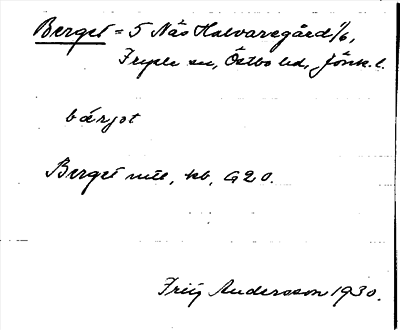 Berget = 5 Näs Halvaregård 1/6,
Fryele sn, Östbo hd, Jönk. l.
bärjət
Berget mtl, kb, G20.
Andersson 1930.